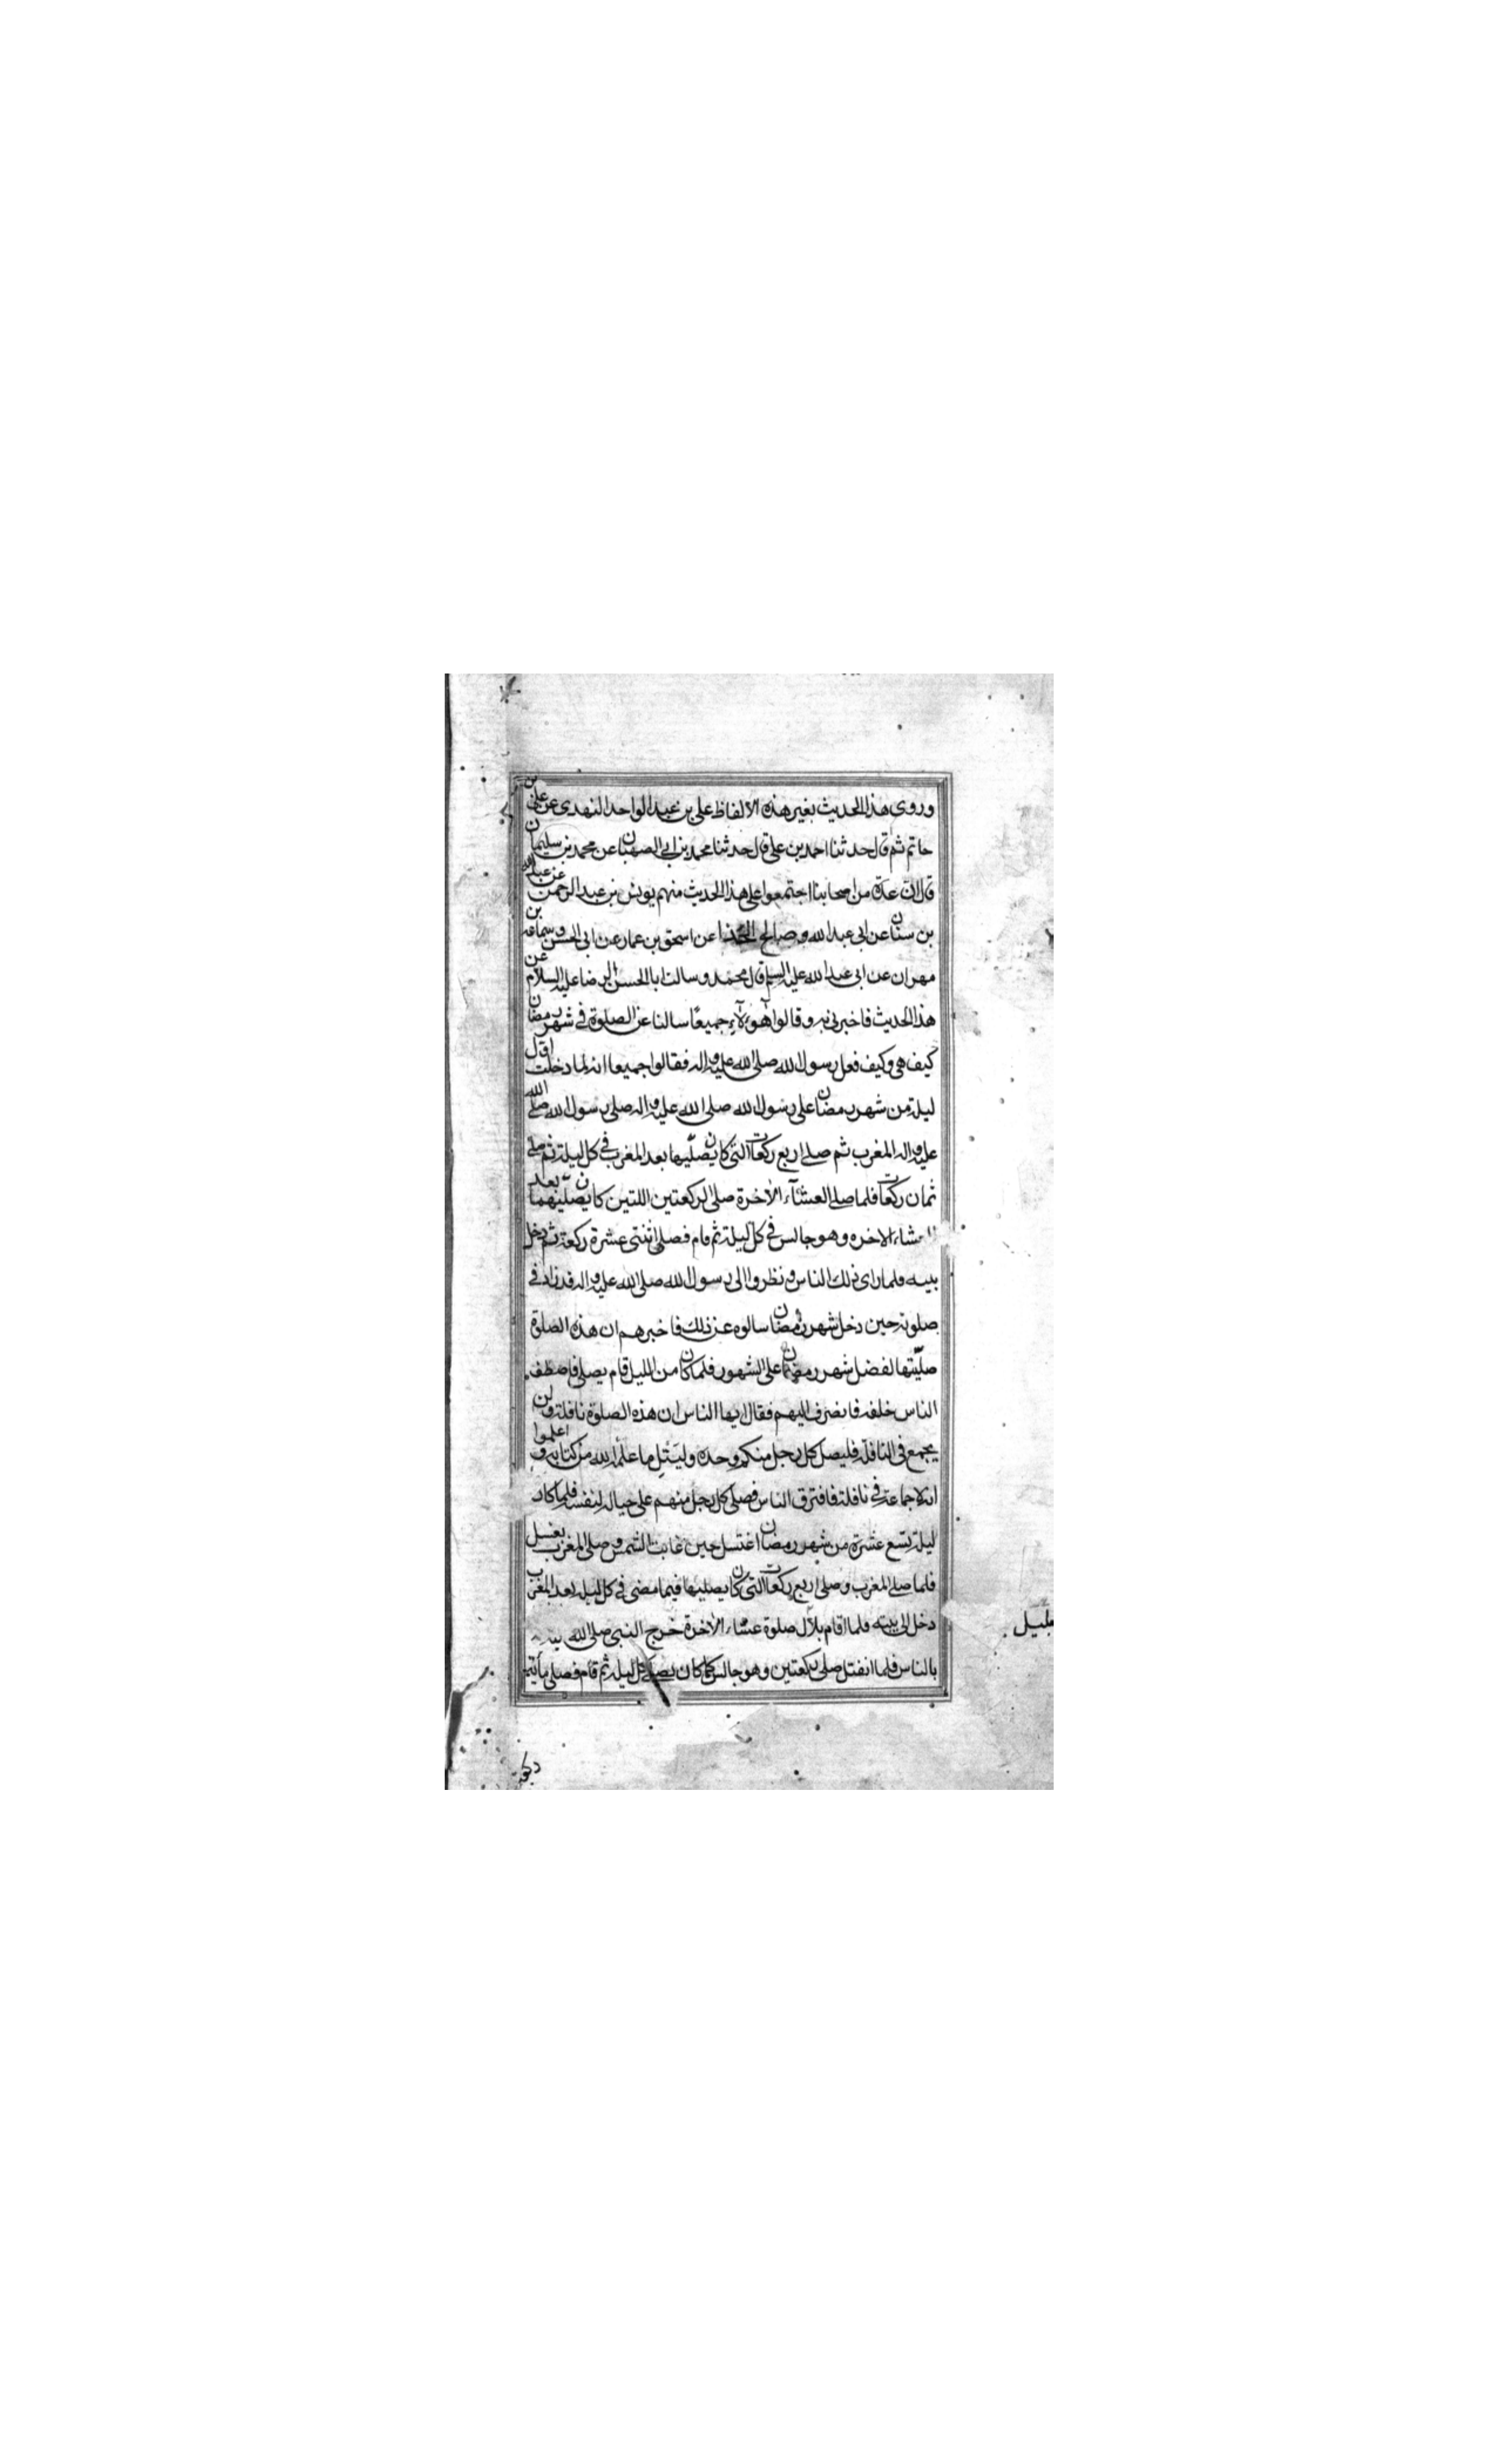 وروى هذا الحديث بغير هذه الالفاظ على بن عبد الواحد النهدى عن على بن
حاتم ثم قال حدثنا احمد بن على قال حدثنا محمد بن ابى الصهبان عن محمد بن سليمان
قال ان عدة من اصحابنا اجتمعوا على هذا الحديث منهم يونس بن عبد الرحمن عن عبد الله
بن سنان عن ابى عبد الله و صالح الحذا عن اسحق بن عمار عن ابى الحسن و سماعة بن
مهران عن ابى عبد الله عليه السلم قال محمد و سالت ابا الحسن الرضا عليه السلام عن
هذا الحديث فاخبرنى به و قالوا هؤلآء جميعًا سالنا عن الصلوة فى شهر رمضان
كيف هى وكيف فعل رسول الله صلى الله عليه واله فقالوا جميعا انه لما دخلت اول
ليلة من شهر رمضان على رسول الله صلى الله عليه واله صلى رسول الله صلى الله
عليه واله المغرب ثم صلى اربع ركعات التى كان يصلّيها بعد المغرب فى كل ليلة ثم صلى
ثمان ركعات فلما صلى العشآء الاخرة صلى الركعتين اللتين كان يصليهما بعد
العشاء الاخره وهو جالس فى كل ليلة ثم قام فصلى اثنتى عشرة ركعة ثم دخل
بيته فلما راى ذلك الناس و نظروا الى رسول الله صلى الله عليه واله قد زاد فى
صلوته حين دخل شهر رمضان سالوه عن ذلك فاخبرهم ان هذه الصلوة
صلّيتها لفضل شهر رمضان على الشهور فلما كان من الليل قام يصلى فاصطف
الناس خلفه فانصرف اليهم فقال ايها الناس ان هذه الصلوة نافلة ولن
يجمع فى النافلة فليصل كل رجل منكم وحده وليَتْلِ ما علمه الله من كتابه و اعلموا
انه لا جماعة فى نافلة فافترق الناس فصلى كل رجل منهم على حياله لنفسه فلما كان
ليلة تسع عشرة من شهر رمضان اغتسل حين غابت الشمس و صلى المغرب بغسل
فلما صلى المغرب و صلى اربع ركعات التى كان يصليها فيما مضى فى كل ليلة بعد المغرب
دخل الى بيته فلما اقام بلال صلوة عشاء الاخرة خرج النبى صلى الله
بالناس فلما انفتل صلى ركعتين و هو جالس كما كان يصلى كل ليلة ثم قام فصلى مأية
ركعة
بليل